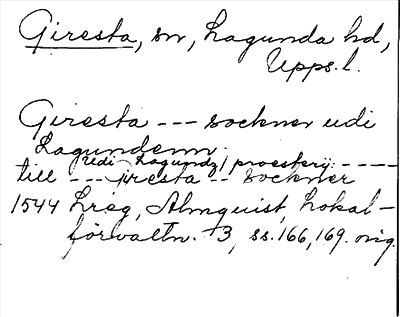 Giresta, sn, Lagunda hd,
Upps. l.
Giresta --- sockner udi
Lagundenn.
udi Lagundz/ proesterij: ----
till --- jresta -- sockner
1544 Lreg, Almquist, Lokal-
förvaltn. 3, ss. 166, 169. orig.